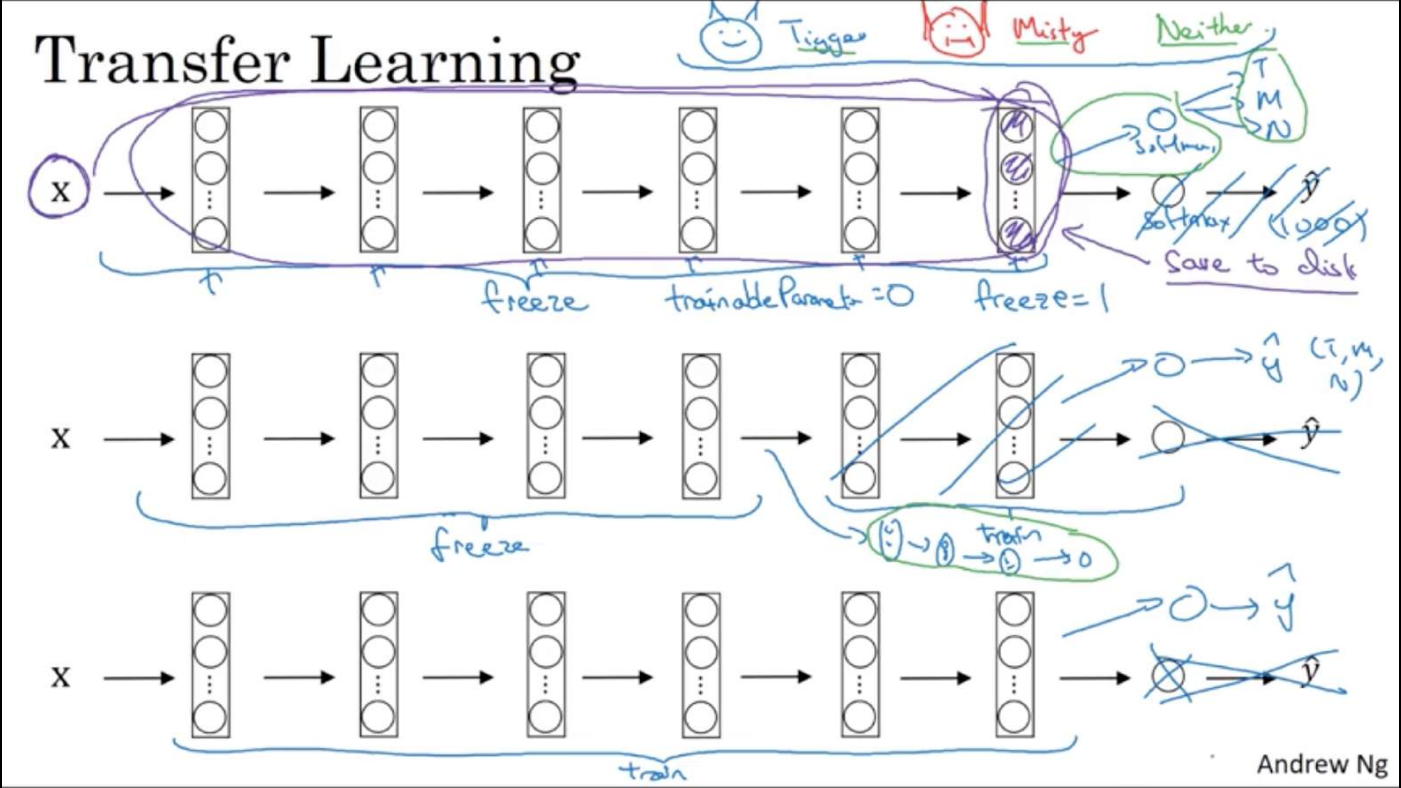 Transfer Learning
Tigger Misty Neither
T
M
N
softmax
x ŷ
softmax (1000)
save to disk
freeze trainableParameter=0 freeze=1
ŷ (T, M, N)
x ŷ
train
freeze
ŷ
x ŷ
train
Andrew Ng